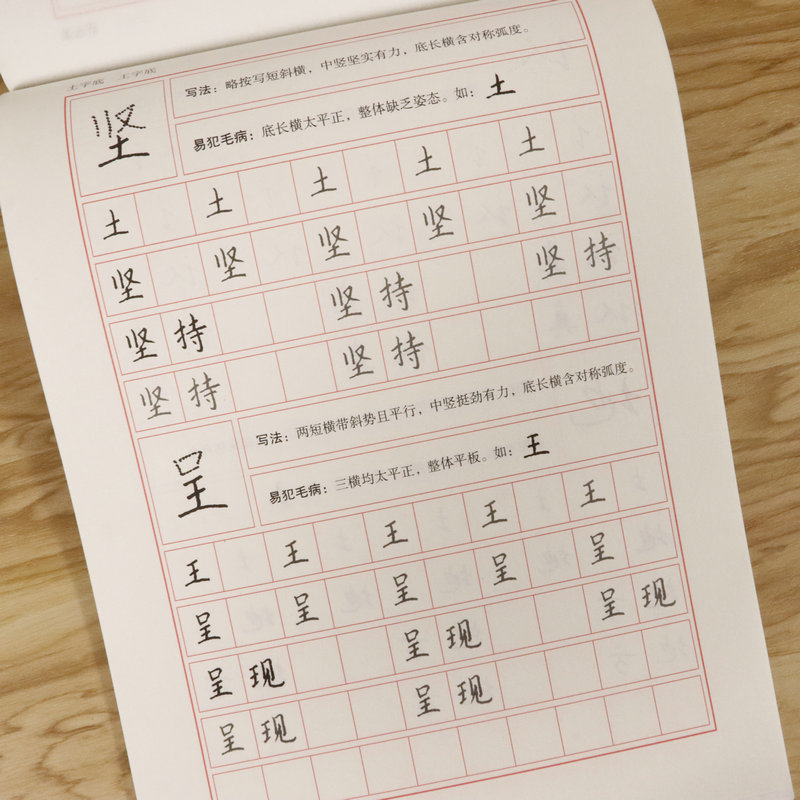 土字底 王字底
坚
写法：略按写短斜横，中竖坚实有力，底长横含对称弧度。
易犯毛病：底长横太平正，整体缺乏姿态。如：土
土 土 土 土 土
坚 坚 坚 坚 坚
坚持 坚持 坚持
坚持 坚持
呈
写法：两短横带斜势且平行，中竖挺劲有力，底长横含对称弧度。
易犯毛病：三横均太平正，整体平板。如：王
王 王 王 王 王
呈 呈 呈 呈 呈
呈现 呈现 呈现
呈现 呈现